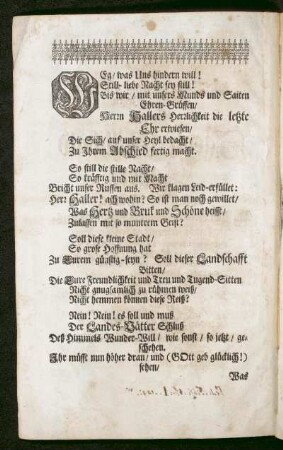 WEg/ was Uns hindern will!
Still- liebe Nacht sey still!
Bis wir/ mit unsers Munds und Saiten
Ehren-Grüssen/
Herrn Hallers Herzlichkeit die letzte
Ehr erwiesen/
Die Sich/ auf unser Heyl bedacht/
Zu Ihrem Abschied fertig macht.
So still die stille Nacht/
So kräfftig und mit Macht
Bricht unser Ruffen aus. Wir klagen Leid-erfüllet:
Herr Haller! ach wohin? So ist man noch gewillet/
Was Hertz und Brust und Schöne heisst/
Zulassen mit so munterem Geist?
Soll diese kleine Stadt/
So grose Hoffnung hat
Zu Eurem günstig-seyn? Soll dieser Landschafft
Bitten/
Die Eure Freundlichkeit und Treu und Tugend-Sitten
Nicht gnugsamlich zu rühmen weiß/
Nicht hemmen können diese Reiß?
Nein! Nein! es soll und muß
Der Landes-Vätter Schluß
Deß Himmels Wunder-Will/ wie sonst/ so jetzt/ ge-
schehen.
Ihr müsst nun höher dran/ und (GOtt geb glücklich!)
sehen/
Was